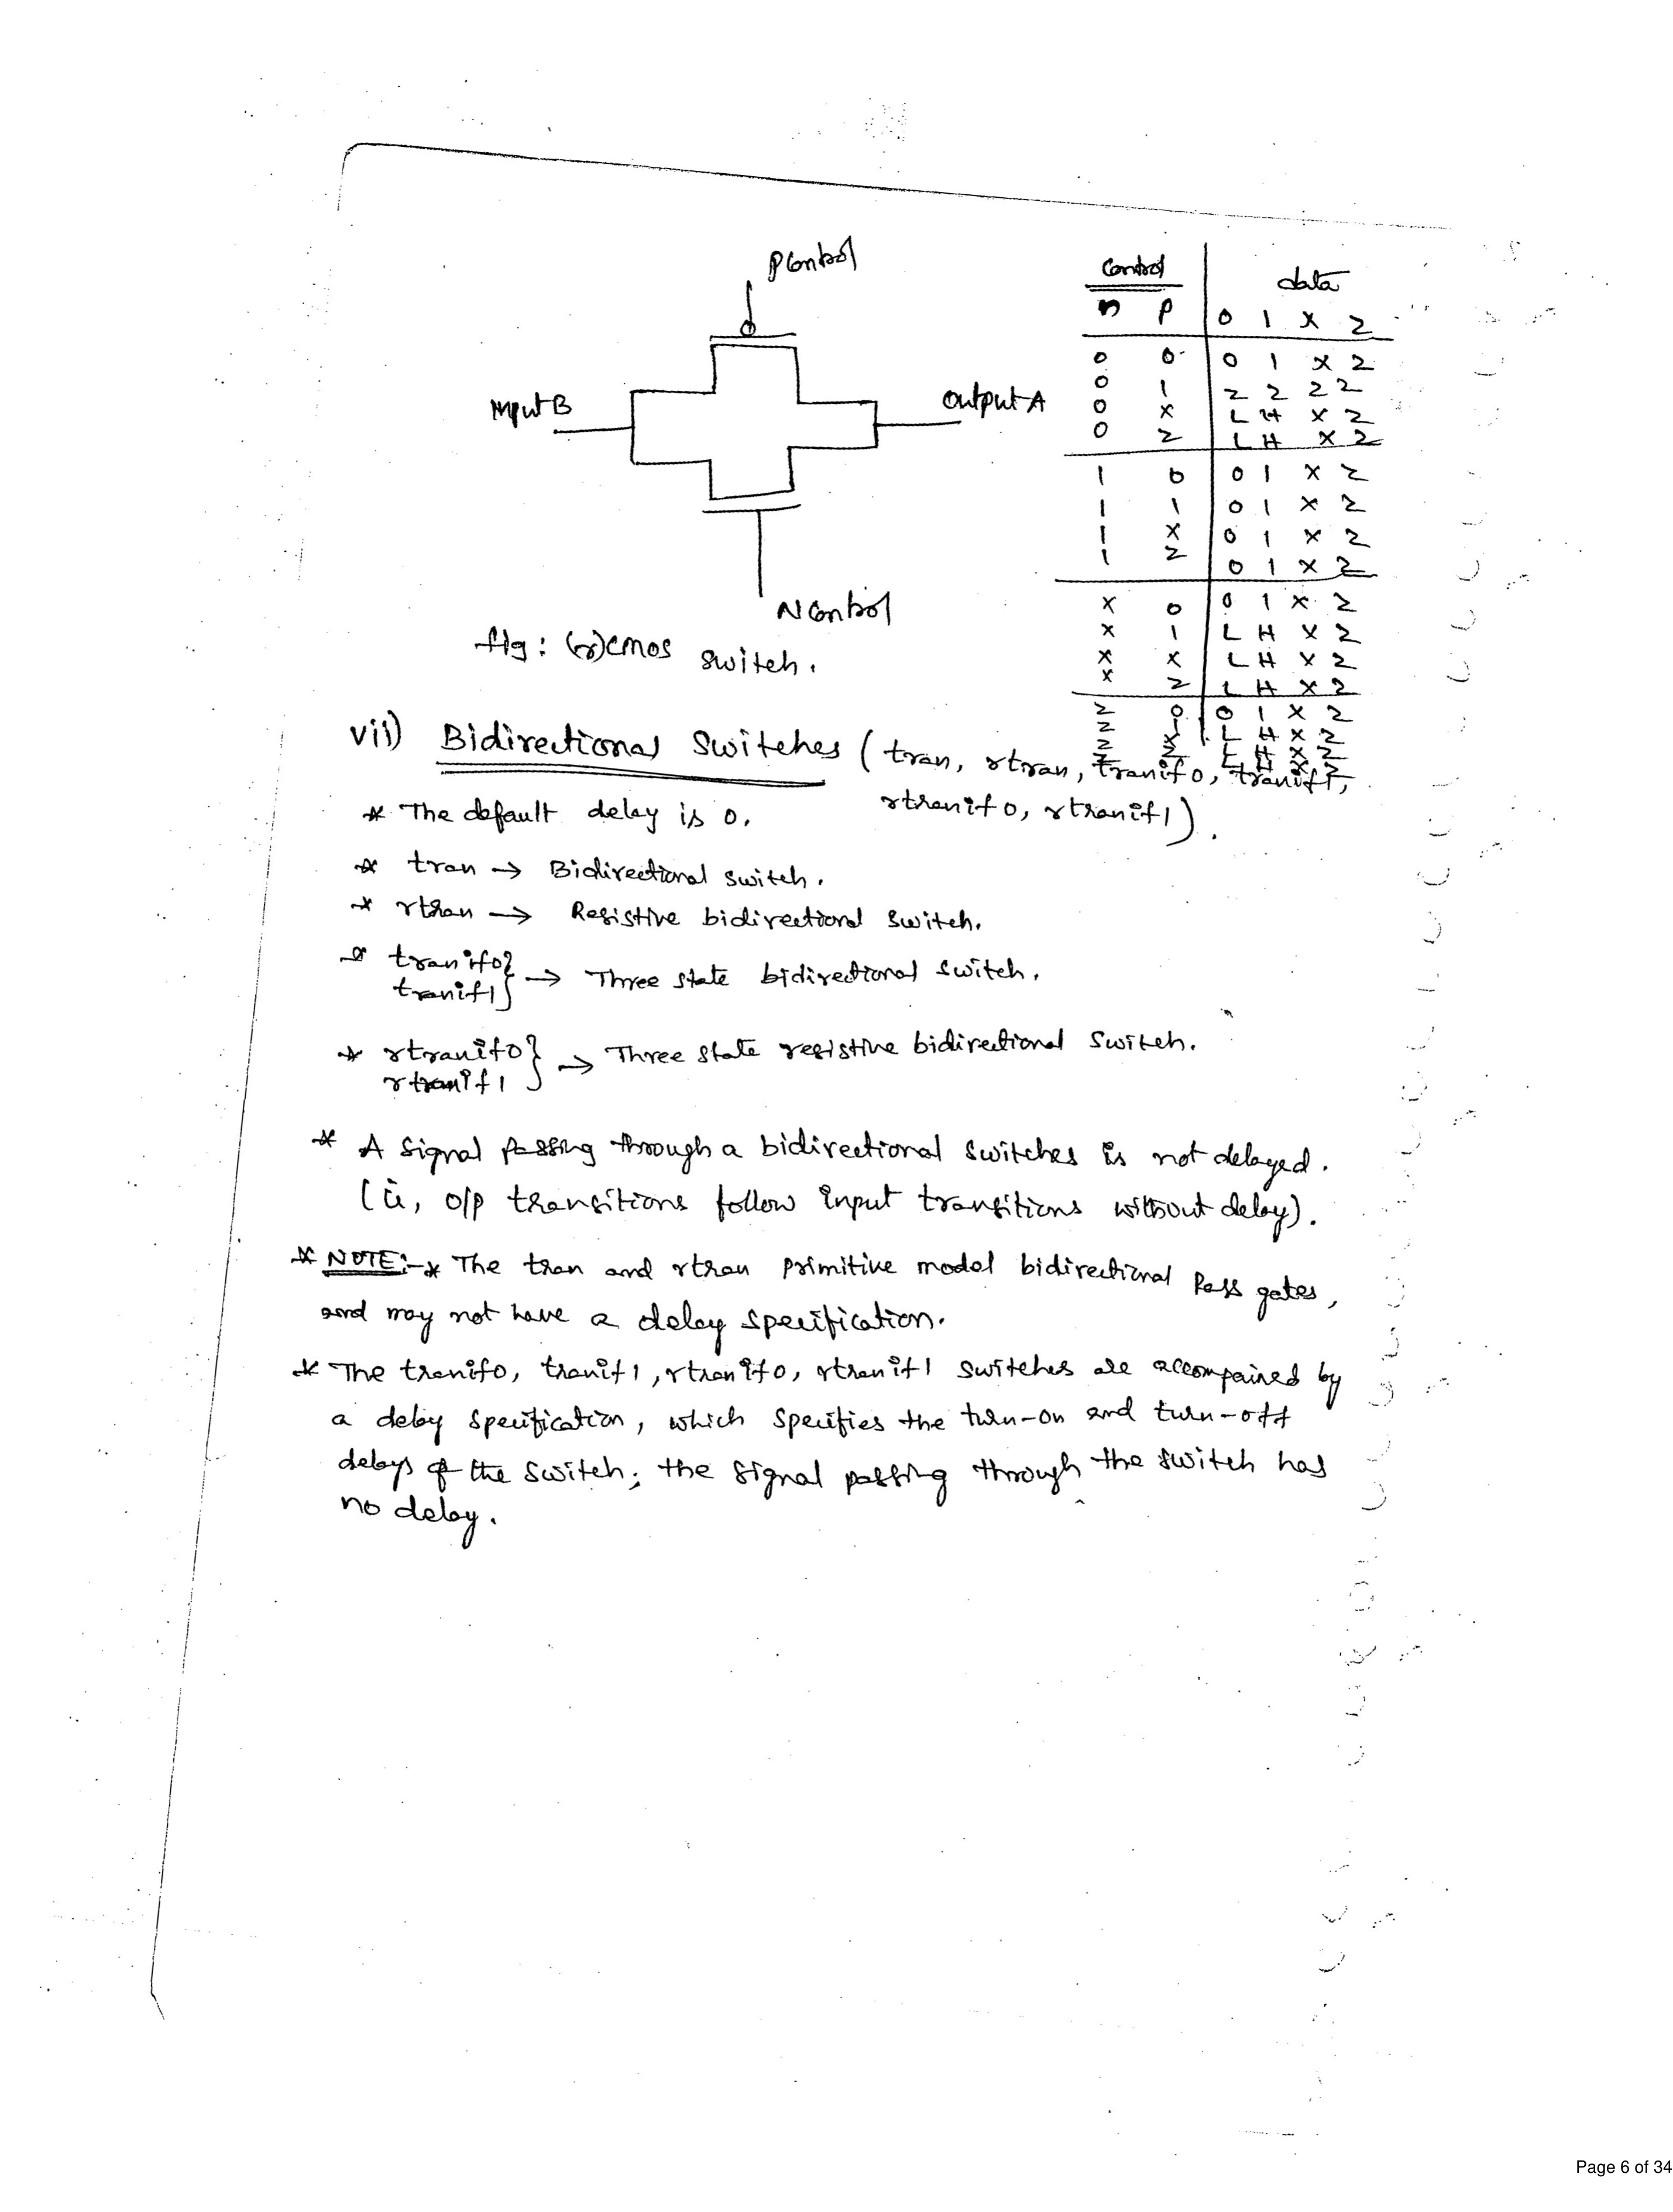 PControl
Input B
Output A
NControl
fig: (r)cmos switch.
Control data
n P 0 1 x z
0 0 0 1 x z
0 1 z z z z
0 x L H x z
0 z L H x z
1 0 0 1 x z
1 1 0 1 x z
1 x 0 1 x z
1 z 0 1 x z
x 0 0 1 x z
x 1 L H x z
x x L H x z
x z L H x z
z 0 0 1 x z
z 1 L H x z
z x L H x z
z z L H x z
vii) Bidirectional Switches (tran, rtran, tranif0, tranif1,
rtranif0, rtranif1).
* The default delay is 0.
* tran → Bidirectional switch.
* rtran → Resistive bidirectional switch.
* tranif0}
tranif1} → Three state bidirectional switch.
* rtranif0}
rtranif1} → Three state resistive bidirectional switch.
* A signal passing through a bidirectional switches is not delayed.
(ie, o/p transitions follow input transitions without delay).
* NOTE:-* The tran and rtran primitive model bidirectional Pass gates,
and may not have a delay specification.
* The tranif0, tranif1, rtranif0, rtranif1 switches are accompaired by
a delay specification, which specifies the turn-on and turn-off
delays of the switch; the signal passing through the switch has
no delay.
Page 6 of 34